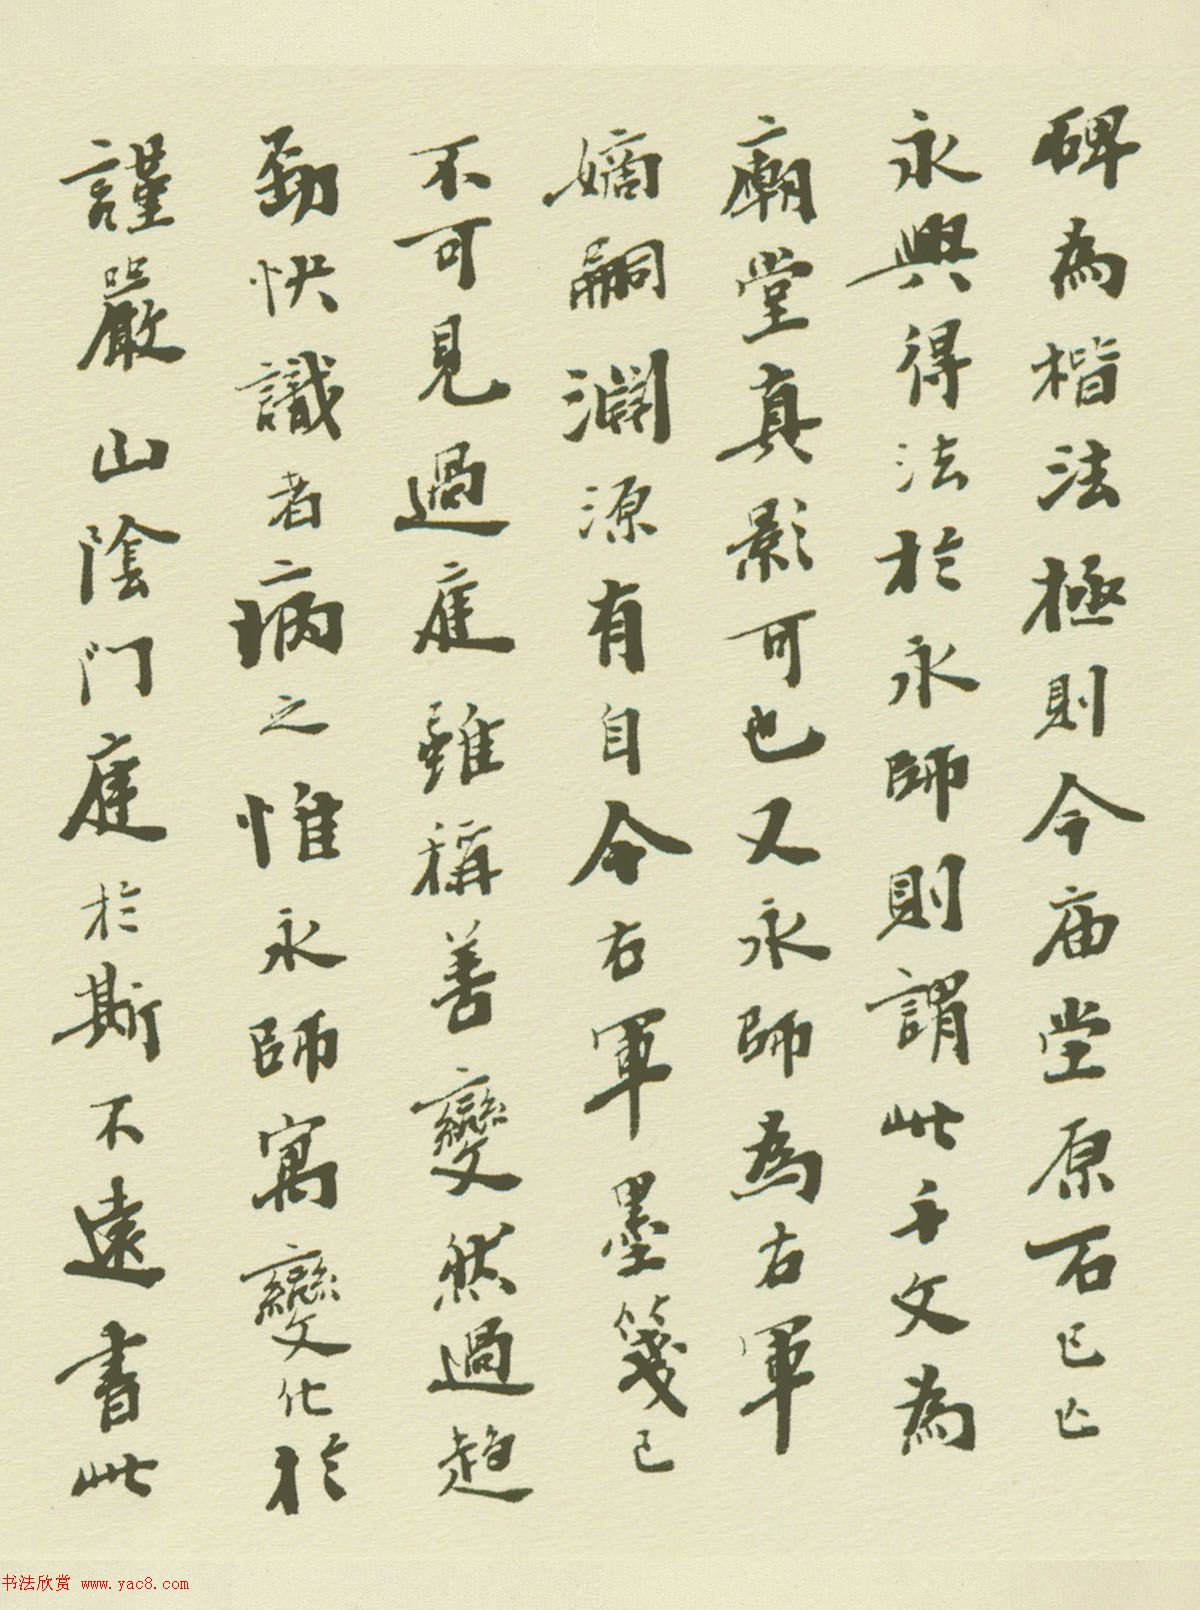 碑為楷法極則今庙堂原石已亡
永興得法於永師則謂此千文為
廟堂真影可也又永師為右軍
嫡嗣淵源有自今右軍墨箋已
不可見過庭雖稱善變然過趋
勁快識者病之惟永師寓變化於
謹嚴山陰門庭於斯不遠書此
书法欣赏 www.yac8.com